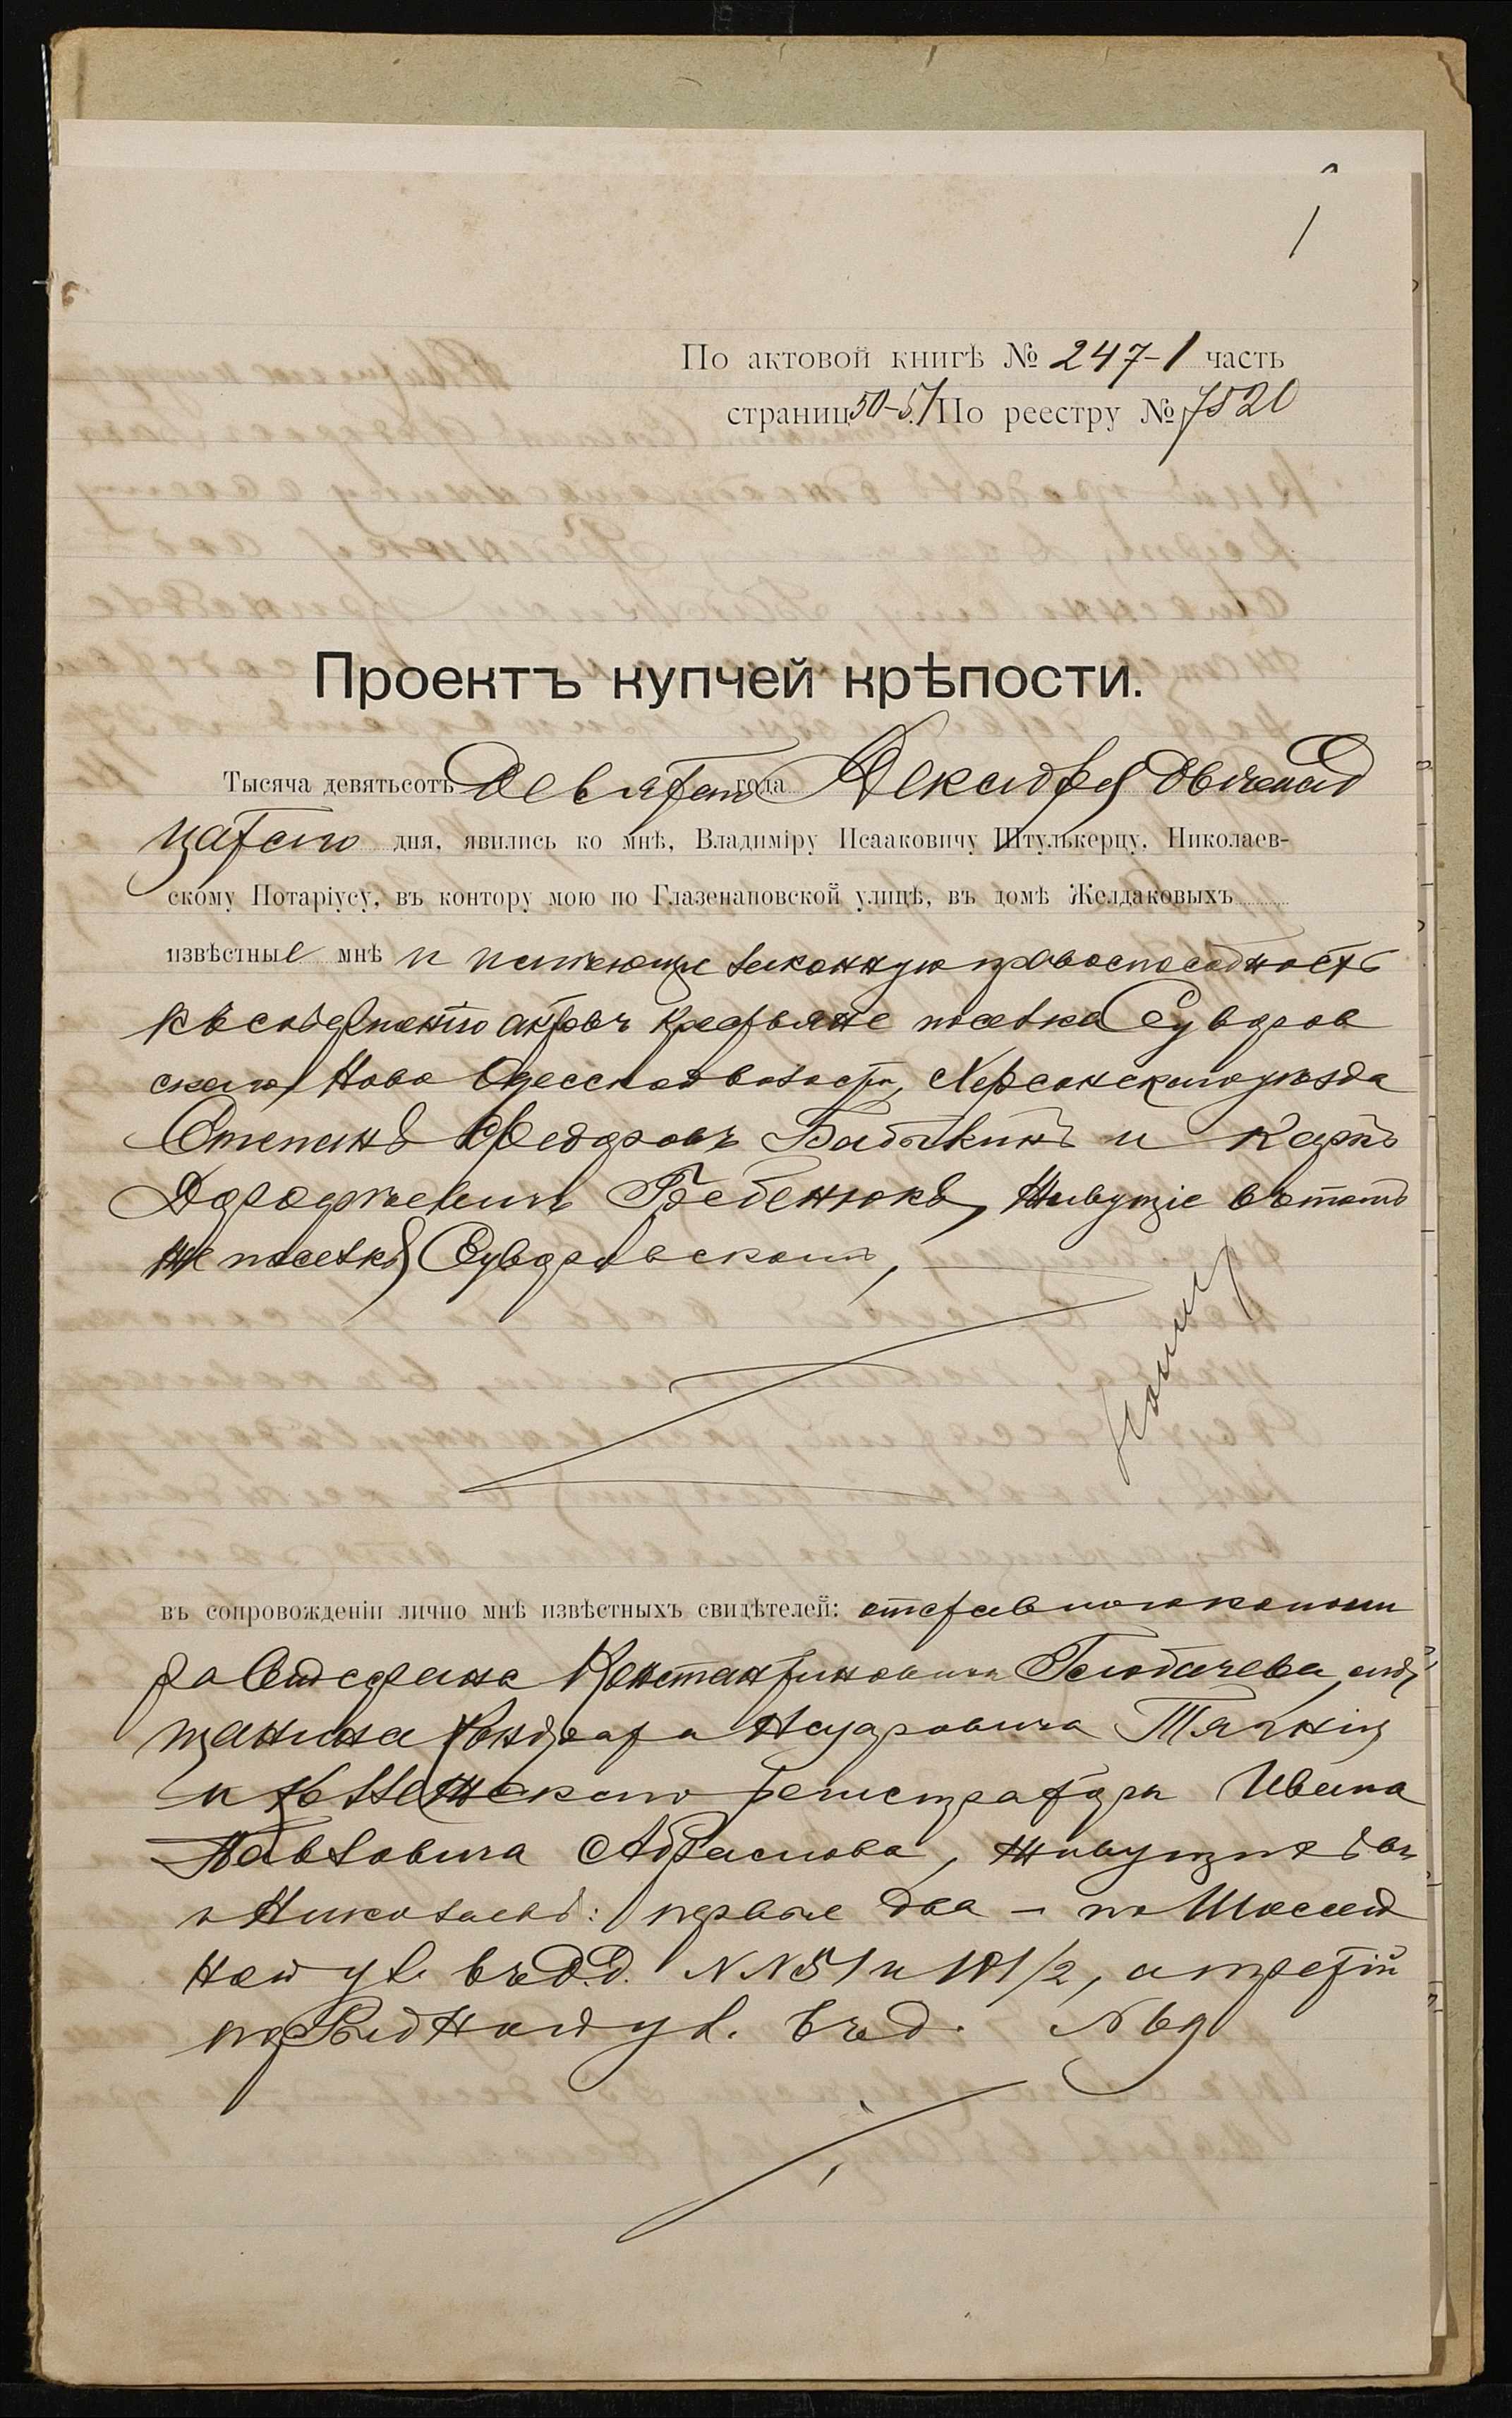 1
По актовой книгѣ № 247-1 часть
страниц 50-51 По реестру № 7520
Проектъ купчей крѣпости.
Тысяча девятьсотъ девятаго года Декабря двѣнад
цатаго дня, явились ко мнѣ, Владиміру Исааковичу Штулькерцу, Николаев-
скому Нотаріусу, въ контору мою по Глазенаповской улицѣ, въ домѣ Желдаковыхъ
извѣстные мнѣ и имѣющіе законную правоспособность
къ совершенію актовъ крестьяне поселка Суворов
скаго, Ново Одесской волости, Херсонскаго уѣзда
Степанъ Федоровъ и Карпъ
Бебенюкъ, живущіе въ томъ
же поселкѣ Суворовскомъ,
въ сопровожденіи лично мнѣ извѣстныхъ свидѣтелей: отставного
Константиновича мѣ
щанина Кондрата Назаровича
и Коллежскаго регистратора Ивана
Павловича Абрасмова, живущихъ въ
г. Николаевѣ: первые два - по Шоссей
ной ул. въ д.д. NN 51 и 101/2, а третій
по Рыбной ул. въ д. N